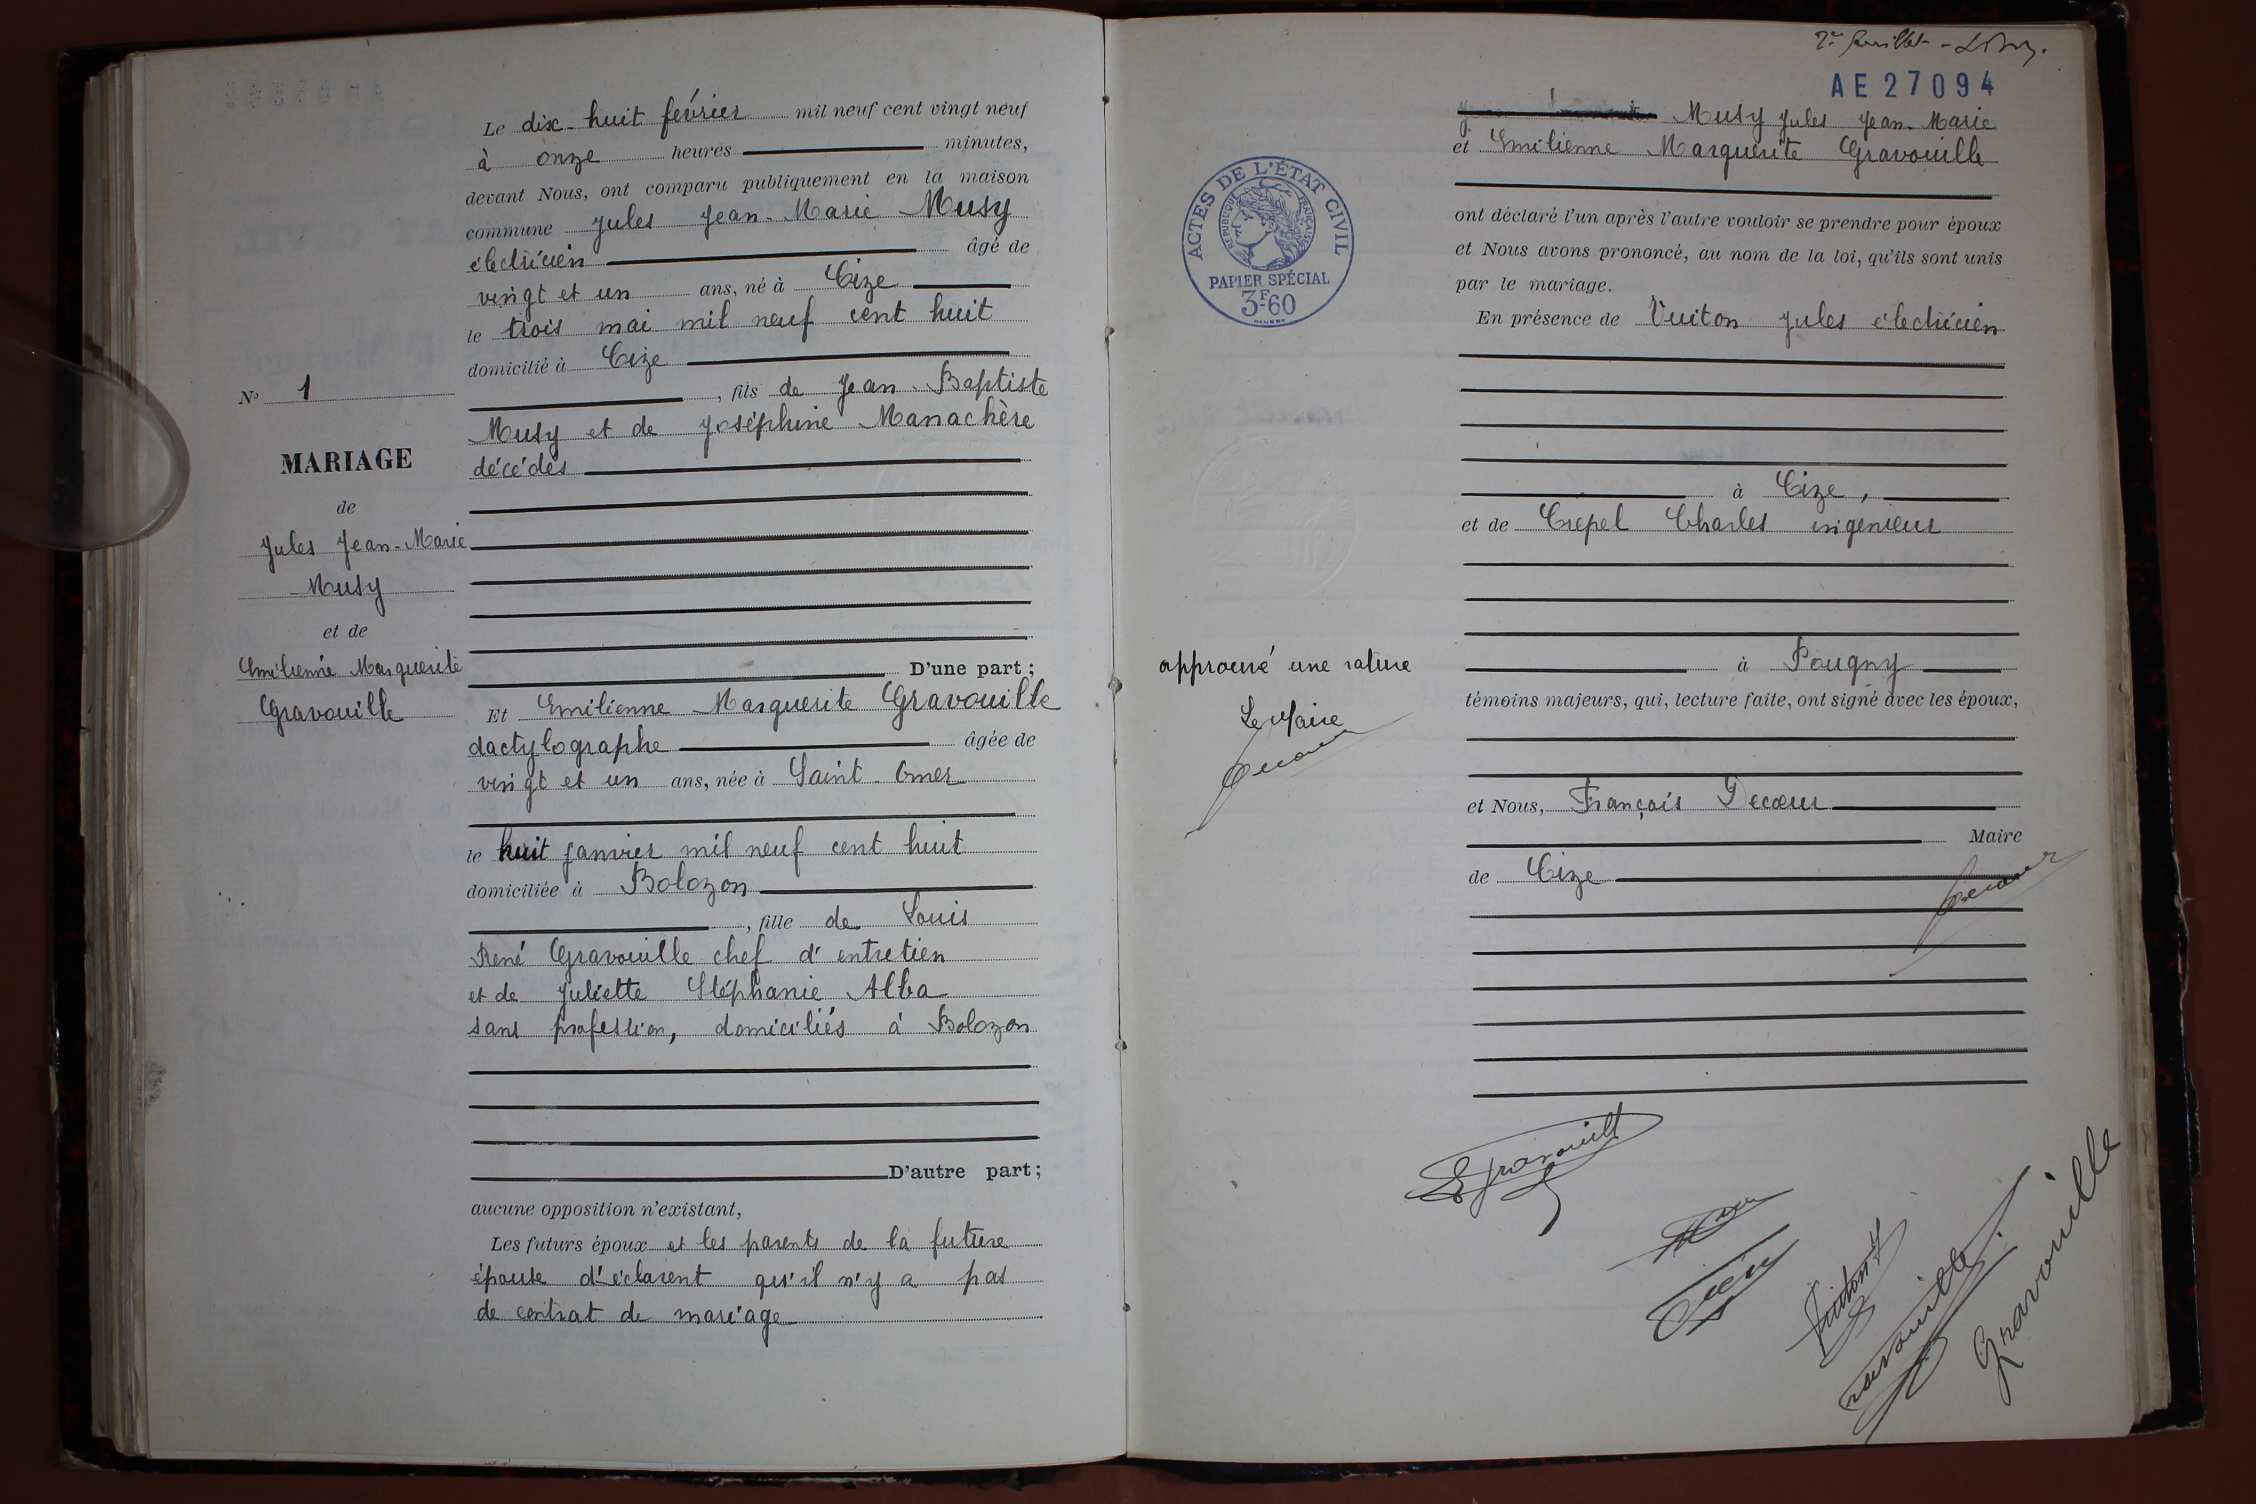 Le dix-huit février mil neuf cent vingt neuf
à onze heures minutes,
devant Nous, ont comparu publiquement en la maison
commune Jules Jean-Marie Musy
électricien âgé de
vingt et un ans, né à Cize
le trois mai mil neuf cent huit
domicilié à Cize
, fils de Jean-Baptiste
Musy et de Joséphine Manachère
décédés
D'une part ;
Et Emilienne Marguerite Gravouille
dactylographe âgée de
vingt et un ans, née à Saint-Omer
le huit janvier mil neuf cent huit
domiciliée à Bolozon
, fille de Louis
René Gravouille chef d'entretien
et de Juliette Stéphanie Alba
sans profession, domiciliés à Bolozon
D'autre part ;
aucune opposition n'existant,
Les futurs époux et les parents de la future
épouse déclarent qu'il n'y a pas
de contrat de mariage
N° 1
MARIAGE
de
Jules Jean-Marie
Musy
et de
Emilienne Marguerite
Gravouille
AE27094
Musy Jules Jean-Marie
et Emilienne Marguerite Gravouille
ont déclaré l'un après l'autre vouloir se prendre pour époux
et Nous avons prononcé, au nom de la loi, qu'ils sont unis
par le mariage.
En présence de Vuiton Jules électricien
à Cize,
et de Crépel Charles ingenieur
à Pougny
témoins majeurs, qui, lecture faite, ont signé avec les époux,
et Nous, François Decœur
Maire
de Cize
Decoeur
ACTES DE L'ÉTAT CIVIL
RÉPUBLIQUE FRANÇAISE
PAPIER SPÉCIAL
3F60
approuvé une rature
Le Maire
Decoeur
E Gravouille
Vuiton J
Gravouille
Gravouille